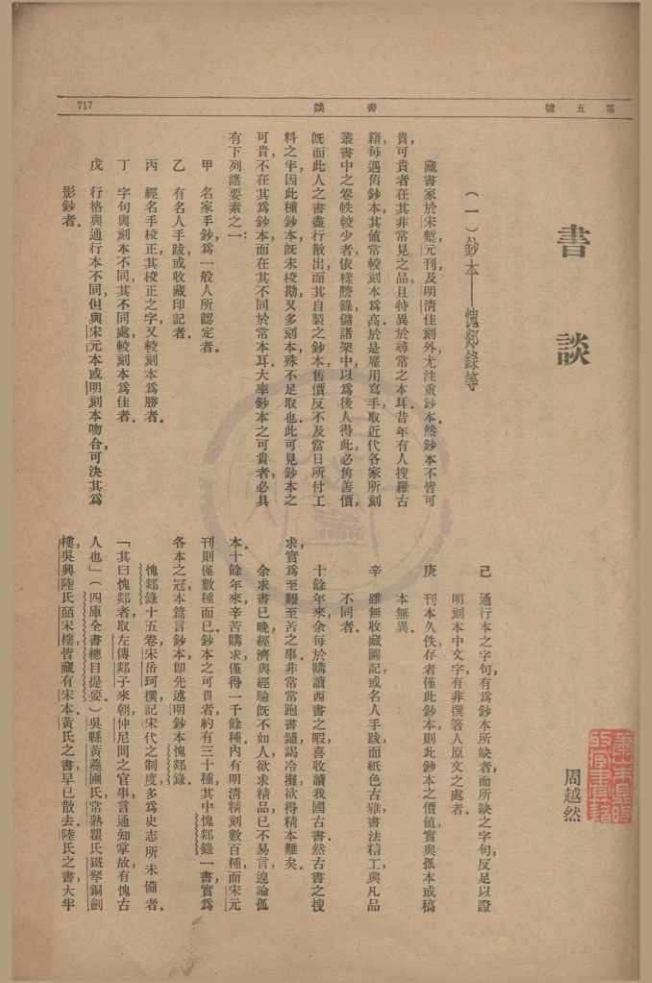 第五號
書談
717
書談
周越然
（一）鈔本——愧郯錄等
藏書家於宋槧元刊及明清佳刻外尤注重鈔本然鈔本不皆可
貴，可貴者在其非常見之品且特異於尋常之本耳昔年有人搜羅古
籍，每遇舊鈔本其值常較刻本爲高於是雇用寫手取近代各家所刻
叢書中之卷帙較少者依樣謄錄儲諸架中以爲後人得此必倍善價，
旣而此人之書盡行散出而其自製之鈔本售價反不及當日所付工
料之半因此種鈔本旣未校勘，又多刻本，殊不足取也此可見鈔本之
可貴不在其爲鈔本而在其不同於常本耳大率鈔本之可貴者必具
有下列諸要素之一：
甲　名家手鈔，爲一般人所認定者．
乙　有名人手跋或收藏印記者．
丙　經名手校正，其校正之字，又較刻本爲勝者．
丁　字句與刻本不同，其不同處，較刻本爲佳者．
戊　行格與通行本不同，但與宋元本或明刻本吻合，可決其爲
影鈔者．
己　通行本之字句，有爲鈔本所缺者而所缺之字句，反足以證
明刻本中文字有非撰著人原文之處者．
庚　刊本久佚，存者僅此鈔本，則此鈔本之價値，實與孤本或稿
本無異．
辛　雖無收藏圖記或名人手跋，而紙色古雅，書法精工，與凡品
不同者．
十餘年來，余每於購讀西書之暇，喜收讀我國古書．然古書之搜
求，實爲至難至苦之事．非常常跑書鋪，謁冷攤，欲得精本難矣．
余求書已晚，經濟與經驗旣不如人，欲求精品，已不易言，遑論孤
本．十餘年來，辛苦購求，僅得一千餘種，內有明清精刻數百種，而宋元
刊則僅數種而已．鈔本之可貴者，約有三十種，其中愧郯錄一書，實爲
各本之冠．本篇言鈔本，卽先述明鈔本愧郯錄．
愧郯錄十五卷，宋岳珂撰，記宋代之制度，多爲史志所未備者．
「其曰愧郯者，取左傳郯子來朝，仲尼問之官事，言通知掌故，有愧古
人也」（四庫全書總目提要）吳縣黃蕘圃氏，常熟瞿氏鐵琴銅劍
樓，吳興陸氏皕宋樓，皆藏有宋本．黃氏之書，早已散去，陸氏之書，大半